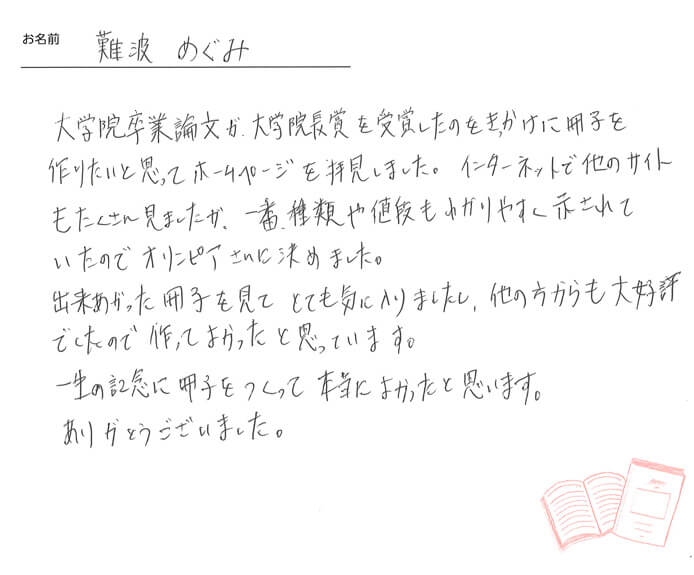 お名前 難波 めぐみ
大学院卒業論文が、大学院長賞を受賞したのをきっかけに冊子を
作りたいと思ってホームページを拝見しました。インターネットで他のサイト
もたくさん見ましたが、一番、種類や値段もわかりやすく示されて
いたのでオリンピアさんに決めました。
出来あがった冊子を見てとても気に入りましたし、他の方からも大好評
でしたので作ってよかったと思っています。
一生の記念に冊子をつくって本当によかったと思います。
ありがとうございました。